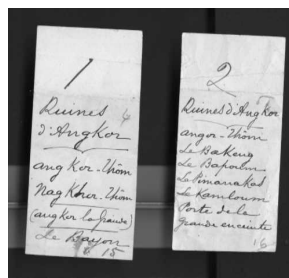 1
Ruines
d'Angkor
angkor-Thom
Nagkhor-Thom
(angkor la Grande)
Le Bayon
6 15
2
Ruines d'Angkor
angor-Thom
Le Bakeng
Le Bapoum
Le Pimanakas
Le Kamloum
Porte de la
grande enceinte
16